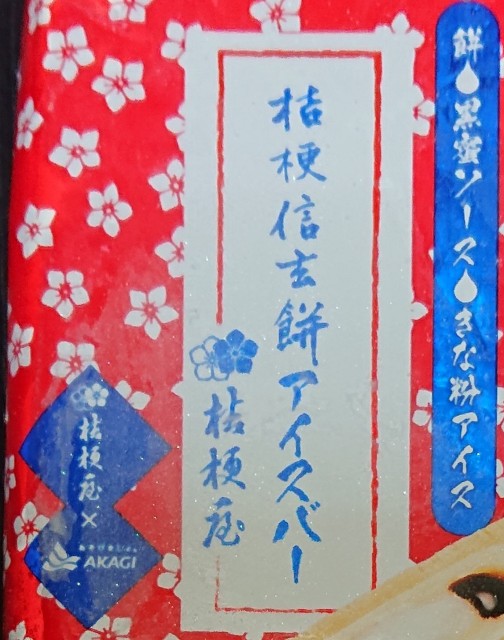 餅●黒蜜ソース●きな粉アイス
桔梗信玄餅アイスバー
桔梗屋
桔梗屋×
あそびましょ。
AKAGI